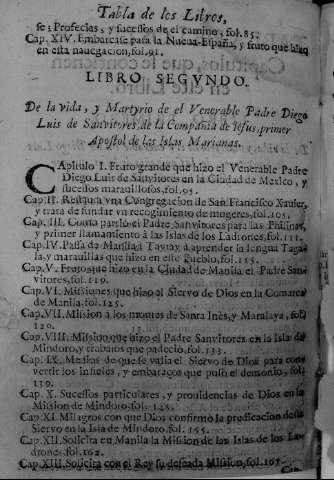 Tabla de los Libros,
se; Profecias, y sucessos de el camino, fol.85.
Cap. XIV. Embarcase pasa la Nueva-España, y fruto que hizo
en esta navegacion, fol.91.
LIBRO SEGVNDO.
De la vida, y Martyrio de el Venerable Padre Diego
Luis de Sanvitores, de la Compañia de Iesus, primer
Apostol de las Islas Marianas.
CApitulo I. Fruto grande que hizo el Venerable Padre
Diego Luis de Sanvitores en la Ciudad de Mexico, y
sucessos maravillosos, fol.95.
Cap. II. Restaura vna Congregacion de San Francisco Xavier,
y trata de fundar vn recogimiento de mugeres, fol.105.
Cap. III. Como partiò el Padre Sanvitores para las Philinas,
y primer llamamiento à las Islas de los Ladrones, fol.111.
Cap. IV. Passa de Manila à Taytay à aprender la lengua Taga-
la, y maravillas que hizo en este Pueblo, fol.115.
Cap. V. Fruto que hizo en la Ciudad de Manila el Padre San-
vitores, fol.119.
Cap. VI. Missiones que hizo el Siervo de Dios en la Comarca
de Manila, fol.125.
Cap. VII. Mission à los montes de Santa Inès, y Maralaya, fol.
120.
Cap. VIII. Mission que hizo el Padre Sanvitores en la Isla de
Mindoro, y trabajos que padeciò, fol.133.
Cap. IX. Medios de que se valia el Siervo de Dios para con-
vertir los infieles, y embaraços que puso el demonio, fol.
139.
Cap. X. Sucessos particulares, y providencias de Dios en la
Mission de Mindoro, fol.
Cap. XI. Milagros con que Dios confirmò la predicacion de su
Siervo en la Isla de Mindoro, fol.
Cap. XII. Solicita en Manila la Mission de las Islas de los La-
drones, fol.162.
Cap. XIII. Solicita con el Rey su deseada Mission, fol.167.